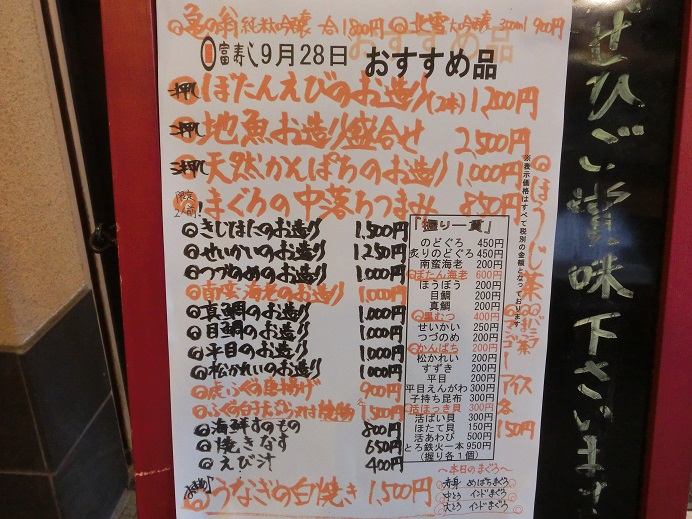 亀の翁 純米大吟醸 一合 1,800円 北雪 大吟醸 300ml 1,900円
富寿し 9月28日 おすすめ品
一押し ぼたんえびのお造り(2本) 1,200円
二押し 地魚お造り盛合せ 2,500円
三押し 天然かんぱちのお造り 1,000円
まぐろの中落ちつまみ 850円
きじはたのお造り 1,500円
せいかいのお造り 1,250円
つづのめのお造り 1,000円
南蛮海老のお造り 1,000円
真鯛のお造り 1,000円
目鯛のお造り 1,000円
平目のお造り 1,000円
松かれいのお造り 1,000円
虎ふぐの唐揚げ 900円
ふぐの白子 1,500円
海鮮すのもの 800円
焼きなす 650円
えび汁 400円
うなぎの白焼き 1,500円
「握り一貫」
のどぐろ 450円
炙りのどぐろ 450円
南蛮海老 200円
ぼたん海老 600円
ほうぼう 200円
目鯛 200円
真鯛 200円
黒むつ 400円
せいかい 250円
つづのめ 200円
かんぱち 200円
松かれい 200円
すずき 200円
平目 200円
平目えんがわ 300円
子持ち昆布 300円
活ほっき貝 300円
活ばい貝 300円
ほたて貝 150円
活あわび 500円
とろ鉄火一本 950円
(握り各1個)
〜本日のまぐろ〜
赤身 めばちまぐろ
中とろ インドまぐろ
大とろ インドまぐろ
※表示価格はすべて税別の金額となっております
ほうじ茶
アイス
各
150円
ぜひご賞味下さいませ